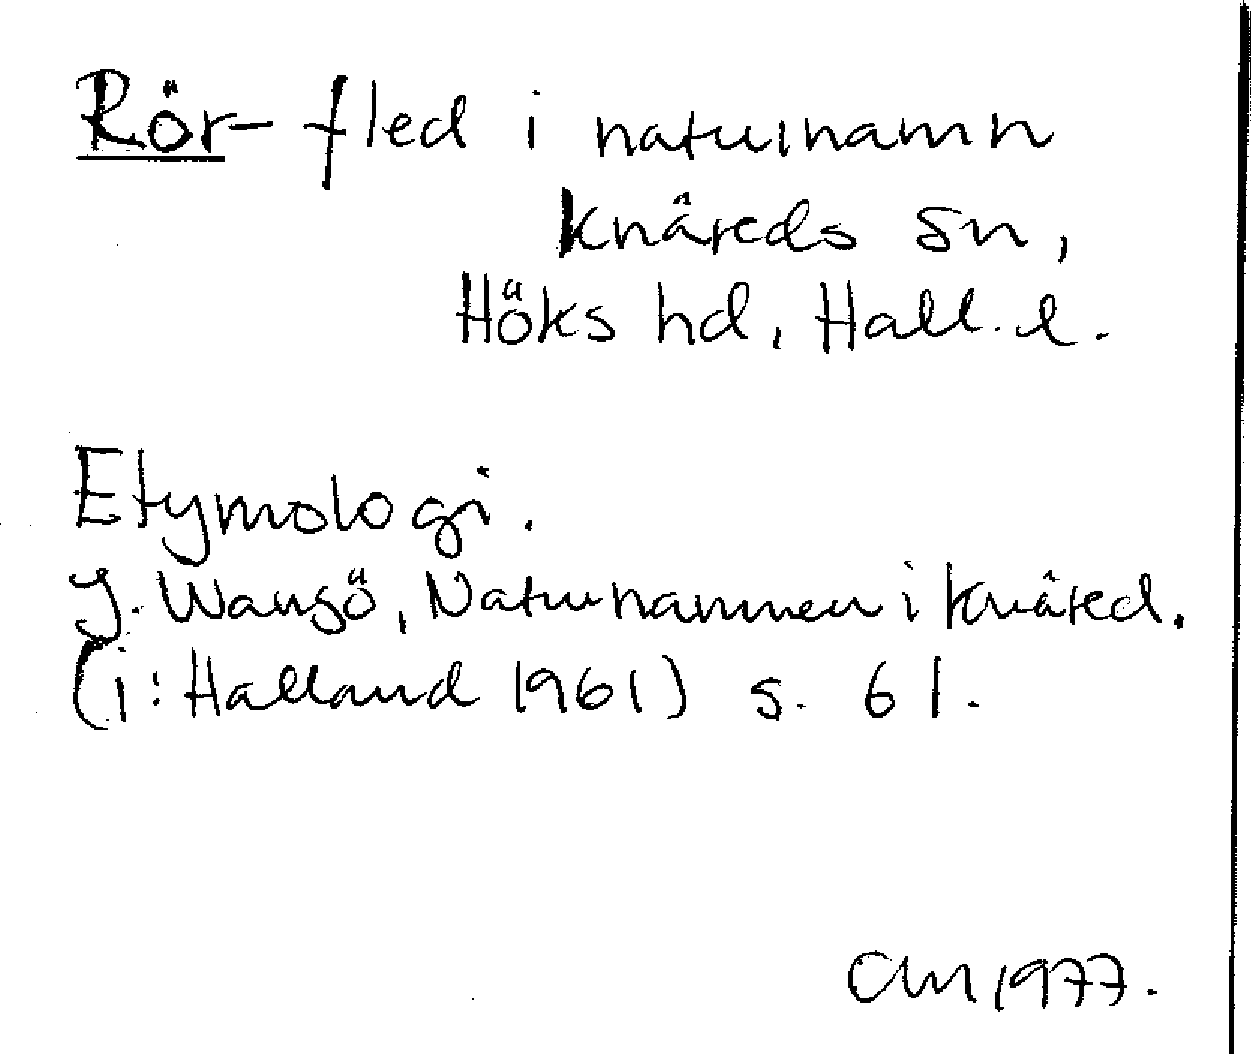 Rör- fled i naturnamn
Knäreds sn,
Höks hd, Hall. l.
Etymologi.
J. Wangö, Naturnamnen i Knäred.
(i: Halland 1961) s. 61.
1977.